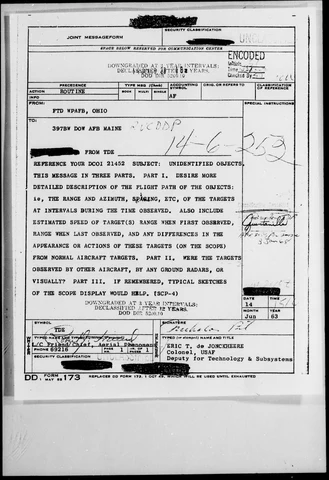 JOINT MESSAGEFORM
SECURITY CLASSIFICATION
SPACE BELOW RESERVED FOR COMMUNICATION CENTER
ENCODED
DOWNGRADED AT 3 YEAR INTERVALS:
DECLASSIFIED AFTER 12 YEARS.
DOD DIR 5200.10
PRECEDENCE
TYPE MSG (Check)
ACCOUNTING SYMBOL
ORIG. OR REFERS TO
CLASSIFICATION OF REFERENCE
ACTION
ROUTINE
BOOK
MULTI
SINGLE
AF
INFO
FROM:
SPECIAL INSTRUCTIONS
FTD WPAFB, OHIO
TO:
397BW DOW AFB MAINE
14-6-252
FROM TDE
REFERENCE YOUR DCOI 21452 SUBJECT: UNIDENTIFIED OBJECTS,
THIS MESSAGE IN THREE PARTS, PART I, DESIRE MORE
DETAILED DESCRIPTION OF THE FLIGHT PATH OF THE OBJECTS:
ie, THE RANGE AND AZIMUTH, SPACING, ETC, OF THE TARGETS
AT INTERVALS DURING THE TIME OBSERVED, ALSO INCLUDE
ESTIMATED SPEED OF TARGET(S) RANGE WHEN FIRST OBSERVED,
RANGE WHEN LAST OBSERVED, AND ANY DIFFERENCES IN THE
APPEARANCE OR ACTIONS OF THESE TARGETS (ON THE SCOPE)
FROM NORMAL AIRCRAFT TARGETS, PART II, WERE THE TARGETS
OBSERVED BY OTHER AIRCRAFT, BY ANY GROUND RADARS, OR
VISUALLY? PART III, IF REMEMBERED, TYPICAL SKETCHES
OF THE SCOPE DISPLAY WOULD HELP. (SCP-4)
DOWNGRADED AT 3 YEAR INTERVALS:
DECLASSIFIED AFTER 12 YEARS.
DOD DIR 5200.10
DATE
TIME
14
MONTH
YEAR
Jun
63
SYMBOL
TDE
SIGNATURE
L/C Friend/Chief, Aerial Phenomena
PHONE 69216
PAGE NR. 1
NR. OF PAGES 1
SECURITY CLASSIFICATION
ERIC T. de JONCKHEERE
Colonel, USAF
Deputy for Technology & Subsystems
DD FORM 173
REPLACES DD FORM 173, 1 OCT 49, WHICH WILL BE USED UNTIL EXHAUSTED